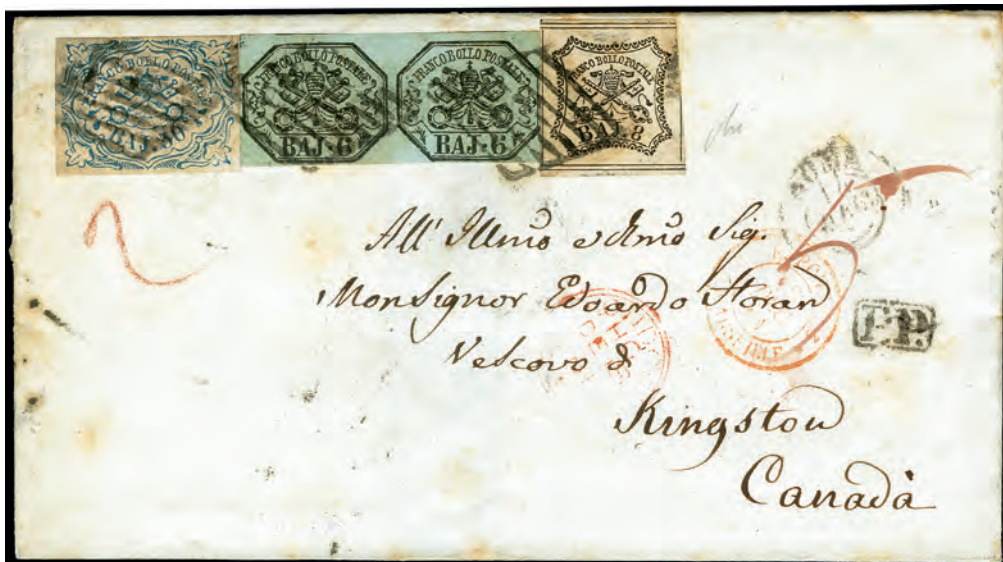 FRANCO BOLLO POSTALE
BAJ. 50
FRANCO BOLLO POSTALE
BAJ. 6
FRANCO BOLLO POSTALE
BAJ. 6
FRANCO BOLLO POSTALE
BAJ. 8
ROMA
All' Illmo e Rmo Sig.
Monsignor Edoardo Horan
Vescovo di
P.P.
Kingston
Canadà